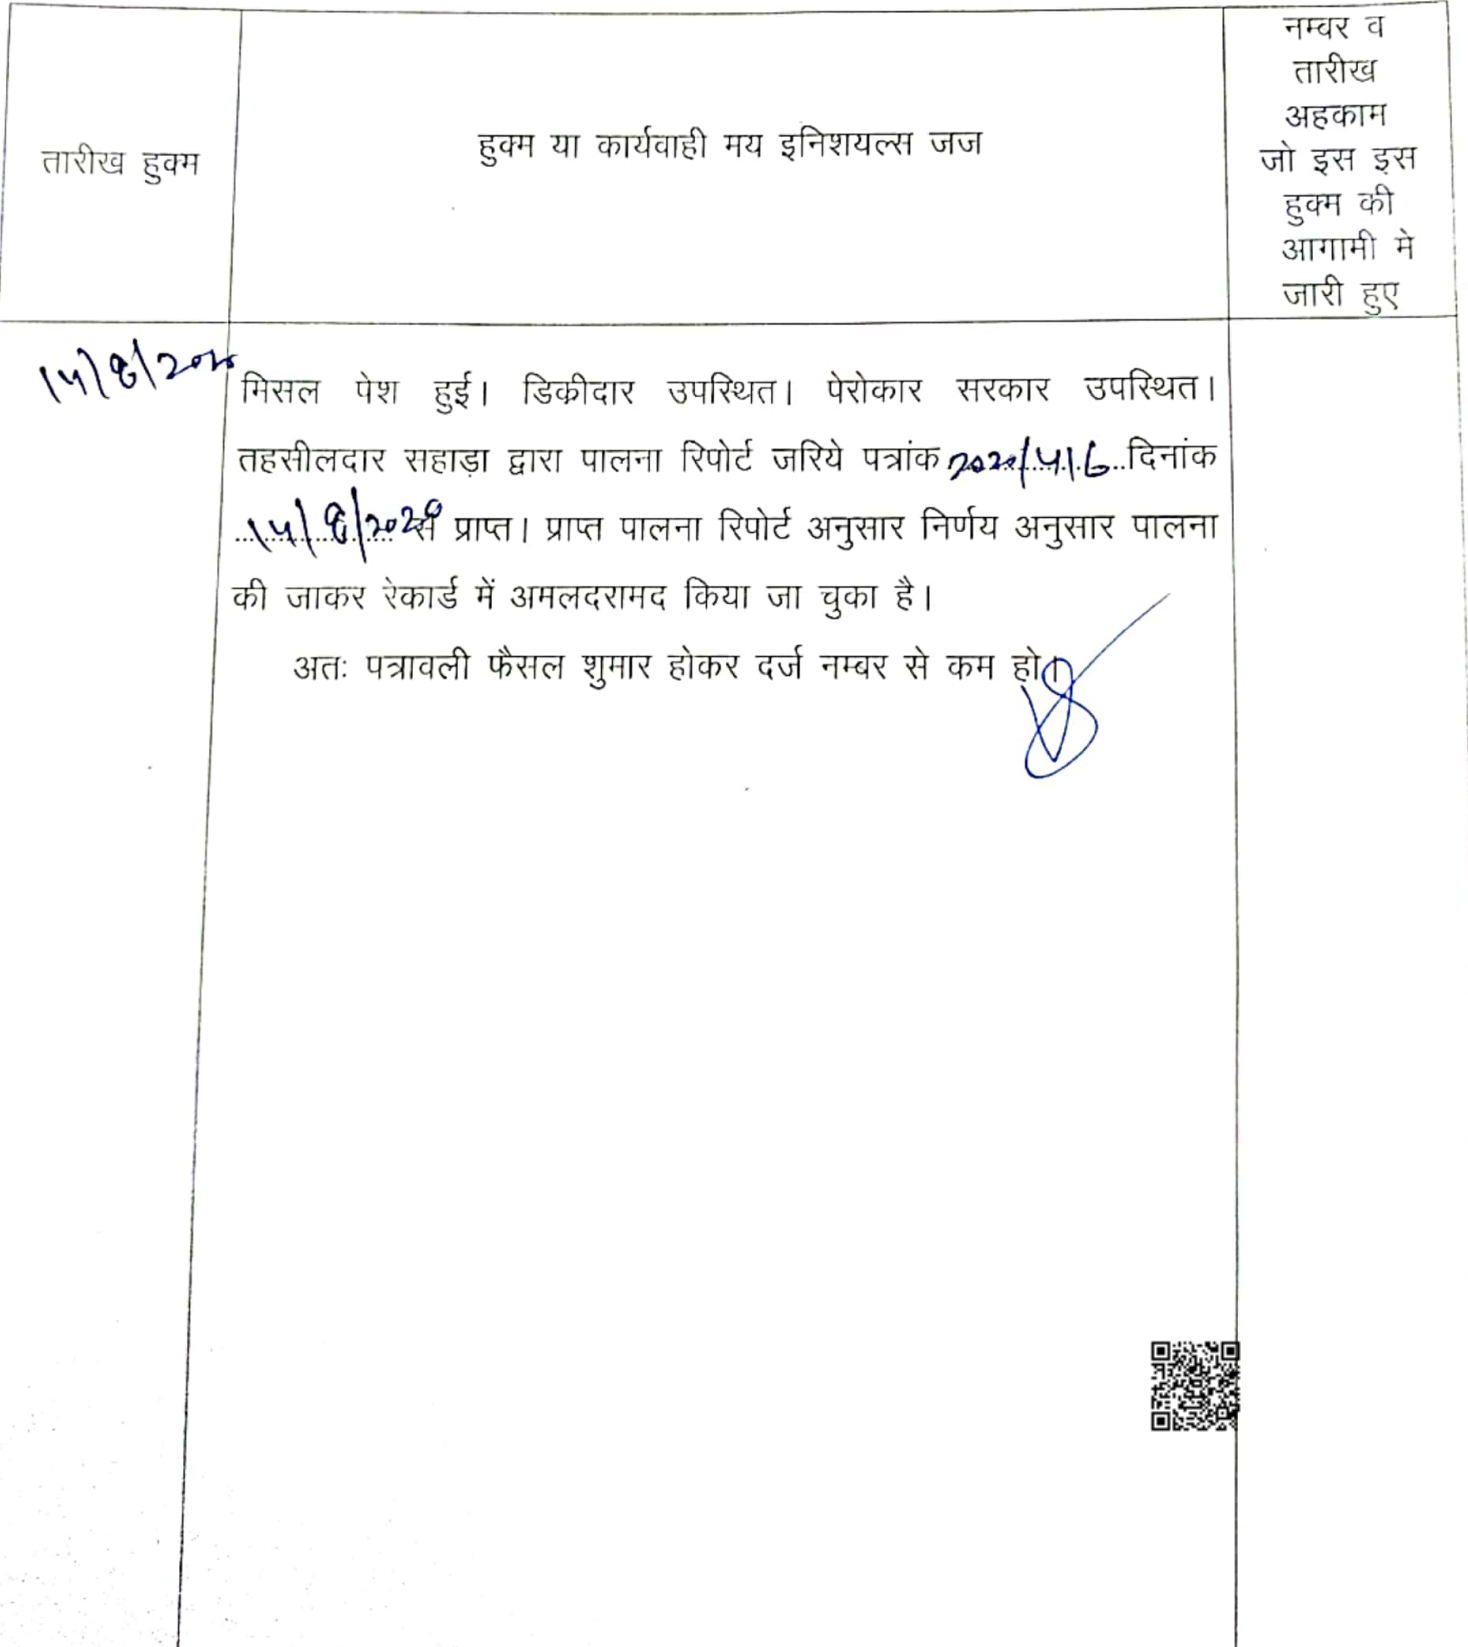 तारीख हुक्म
हुक्म या कार्यवाही मय इनिशयल्स जज
नम्बर व
तारीख
अहकाम
जो इस इस
हुक्म की
आगामी मे
जारी हुए
14/8/2020
मिसल पेश हुई। डिक्रीदार उपस्थित। पेरोकार सरकार उपस्थित।
तहसीलदार सहाड़ा द्वारा पालना रिपोर्ट जरिये पत्रांक 2020/416 दिनांक
14/8/2020 से प्राप्त। प्राप्त पालना रिपोर्ट अनुसार निर्णय अनुसार पालना
की जाकर रेकार्ड में अमलदरामद किया जा चुका है।
अतः पत्रावली फैसल शुमार होकर दर्ज नम्बर से कम हो।